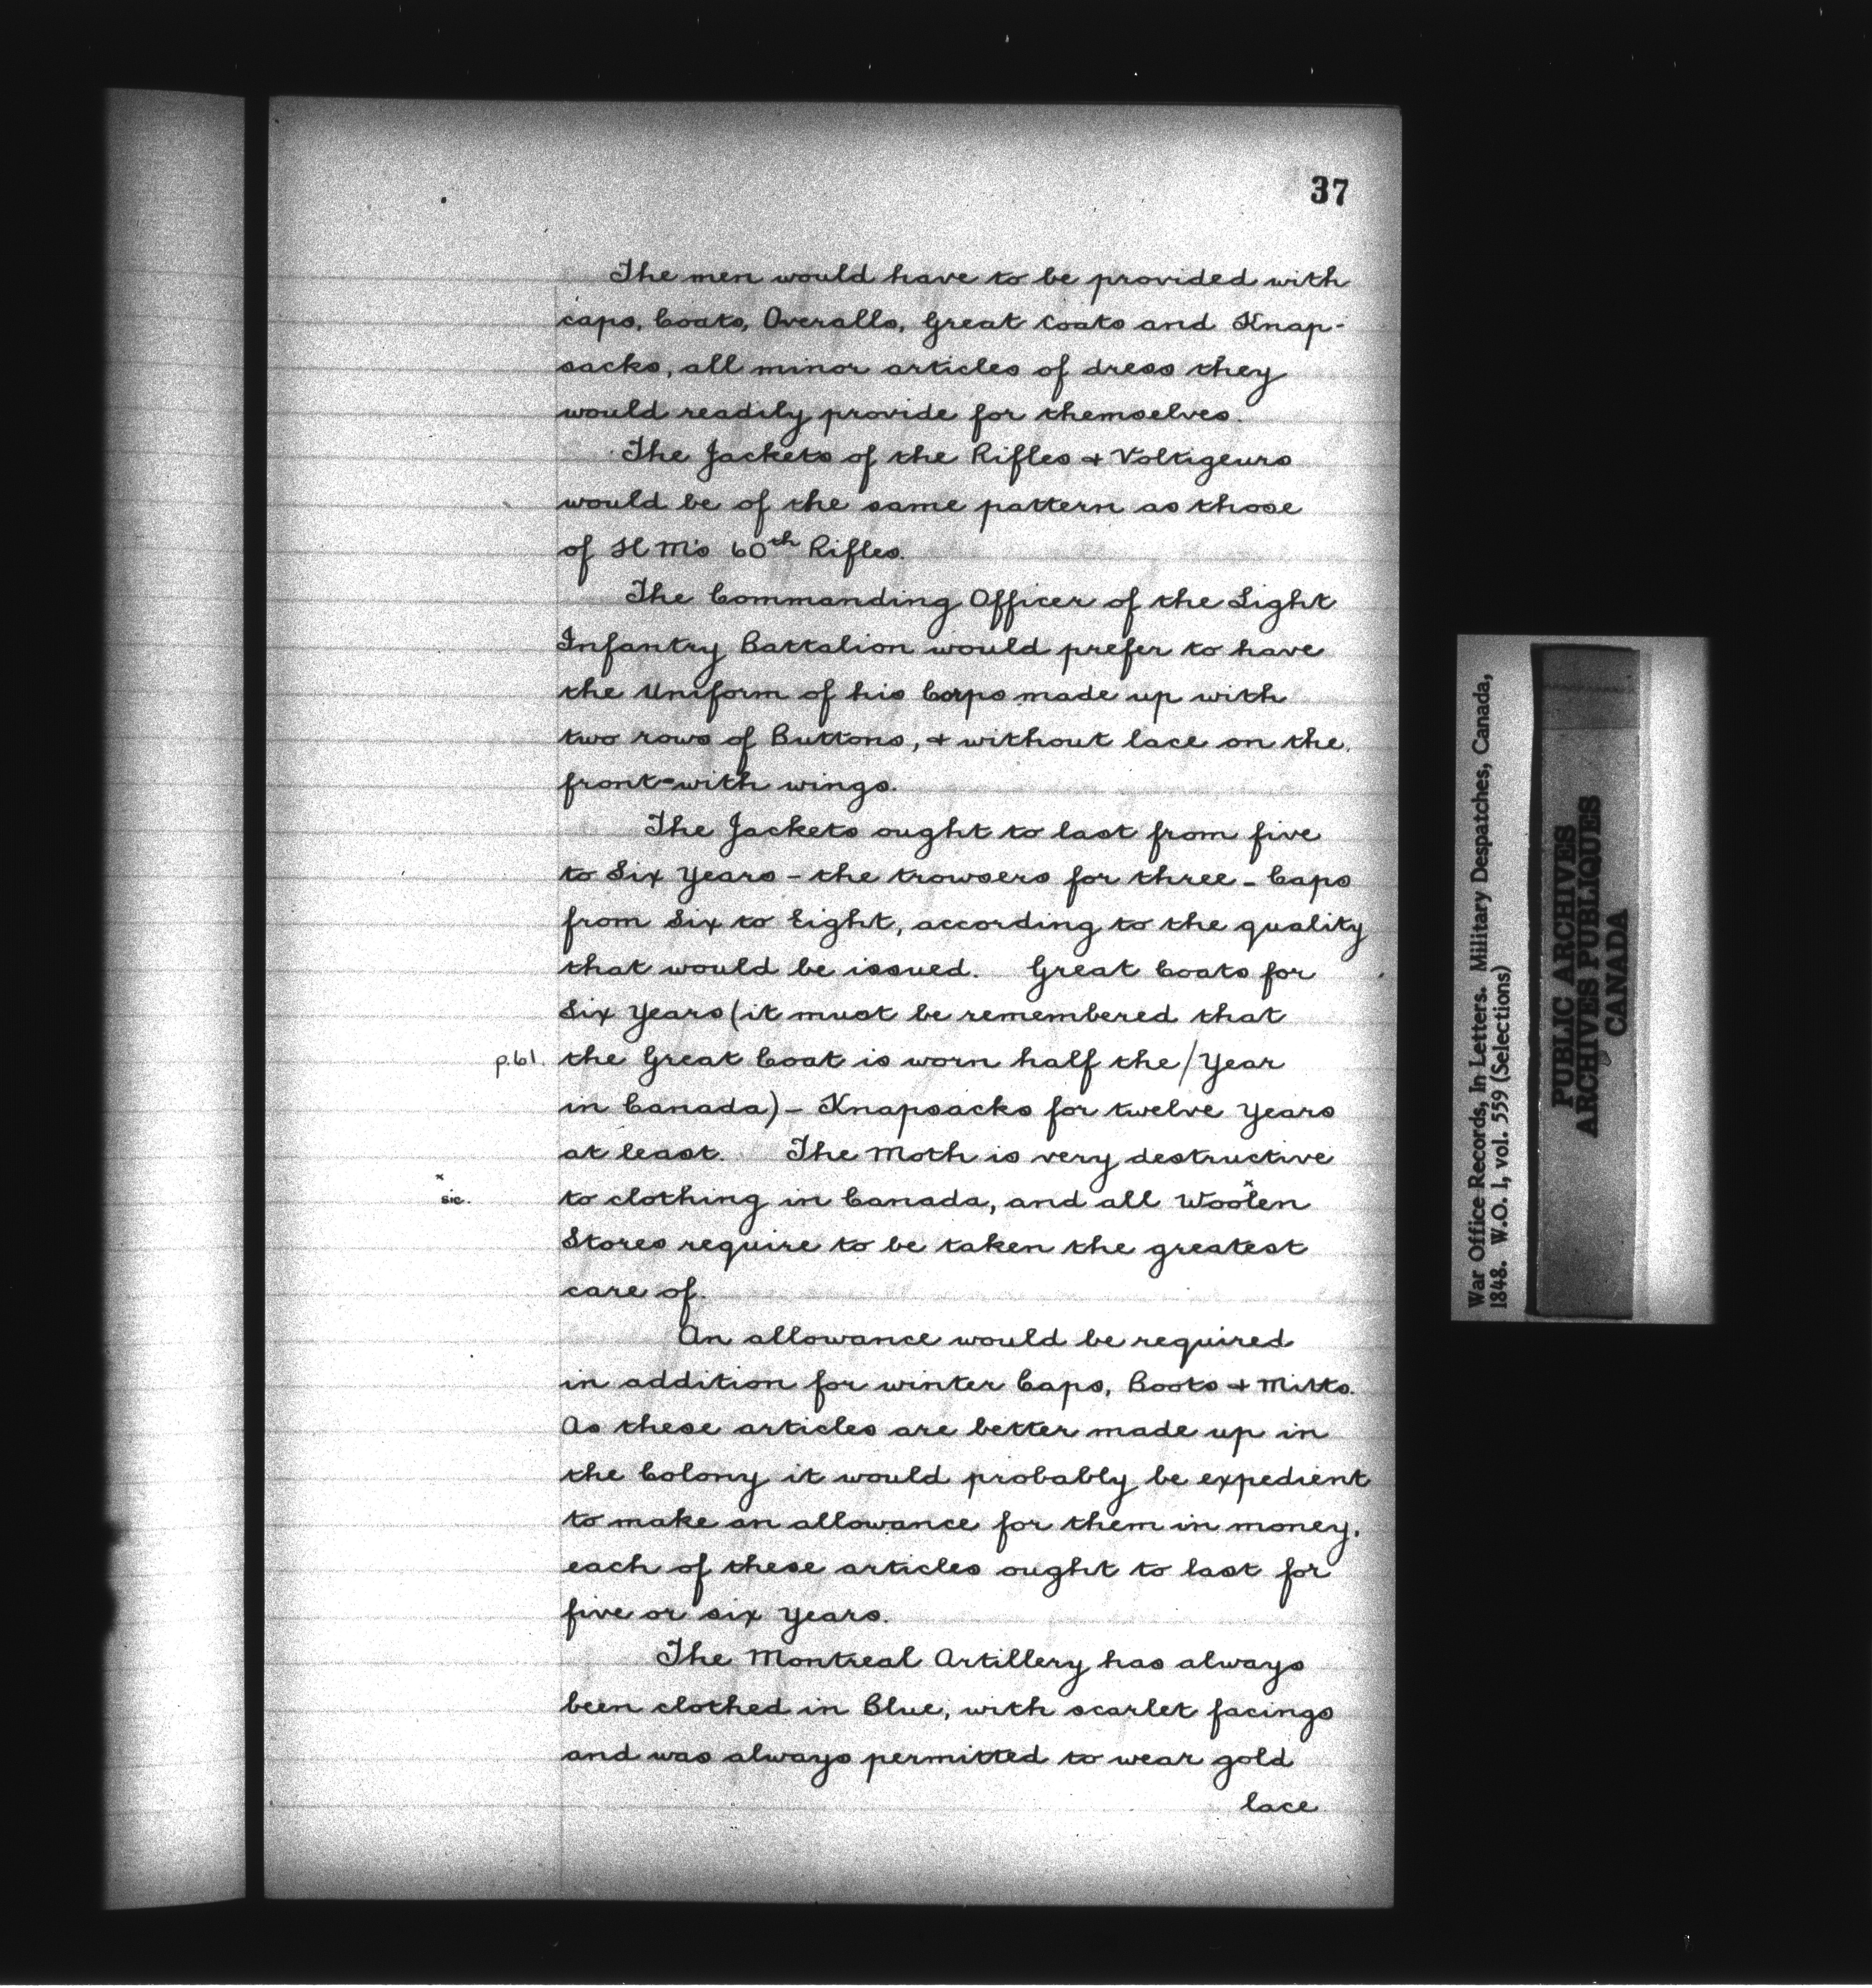 37
The men would have to be provided with
caps, Coats, Overalls, Great Coats and Knap-
sacks, all minor articles of dress they
would readily provide for themselves.
The Jackets of the Rifles & Voltigeurs
would be of the same pattern as those
of H M's 60th Rifles.
The Commanding Officer of the Light
Infantry Battalion would prefer to have
the Uniform of his Corps made up with
two rows of Buttons, & without lace on the
front - with wings.
The Jackets ought to last from five
to Six Years - the trowsers for three - Caps
from Six to Eight, according to the quality
that would be issued. Great Coats for
Six Years (it must be remembered that
p.61. the Great Coat is worn half the / Year
in Canada) - Knapsacks for twelve Years
at least. The Moth is very destructive
x
sic. to clothing in Canada, and all Woolen x
Stores require to be taken the greatest
care of.
An allowance would be required
in addition for winter Caps, Boots & Mitts.
As these articles are better made up in
the Colony it would probably be expedient
to make an allowance for them in money,
each of these articles ought to last for
five or six Years.
The Montreal Artillery has always
been clothed in Blue, with scarlet facings
and was always permitted to wear gold
lace
War Office Records, In Letters. Military Despatches, Canada,
1848. W.O. 1, vol. 559 (Selections)
PUBLIC ARCHIVES
ARCHIVES PUBLIQUES
CANADA